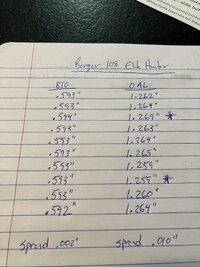 Berger 108 Elite Hunter
BTO OAL
.593" 1.262"
.593" 1.264"
.594" 1.269" *
.593" 1.263"
.593" 1.264"
.593" 1.265"
.593" 1.259"
.593" 1.259" *
.593" 1.260"
.592" 1.264"
Spread .002" Spread .010"